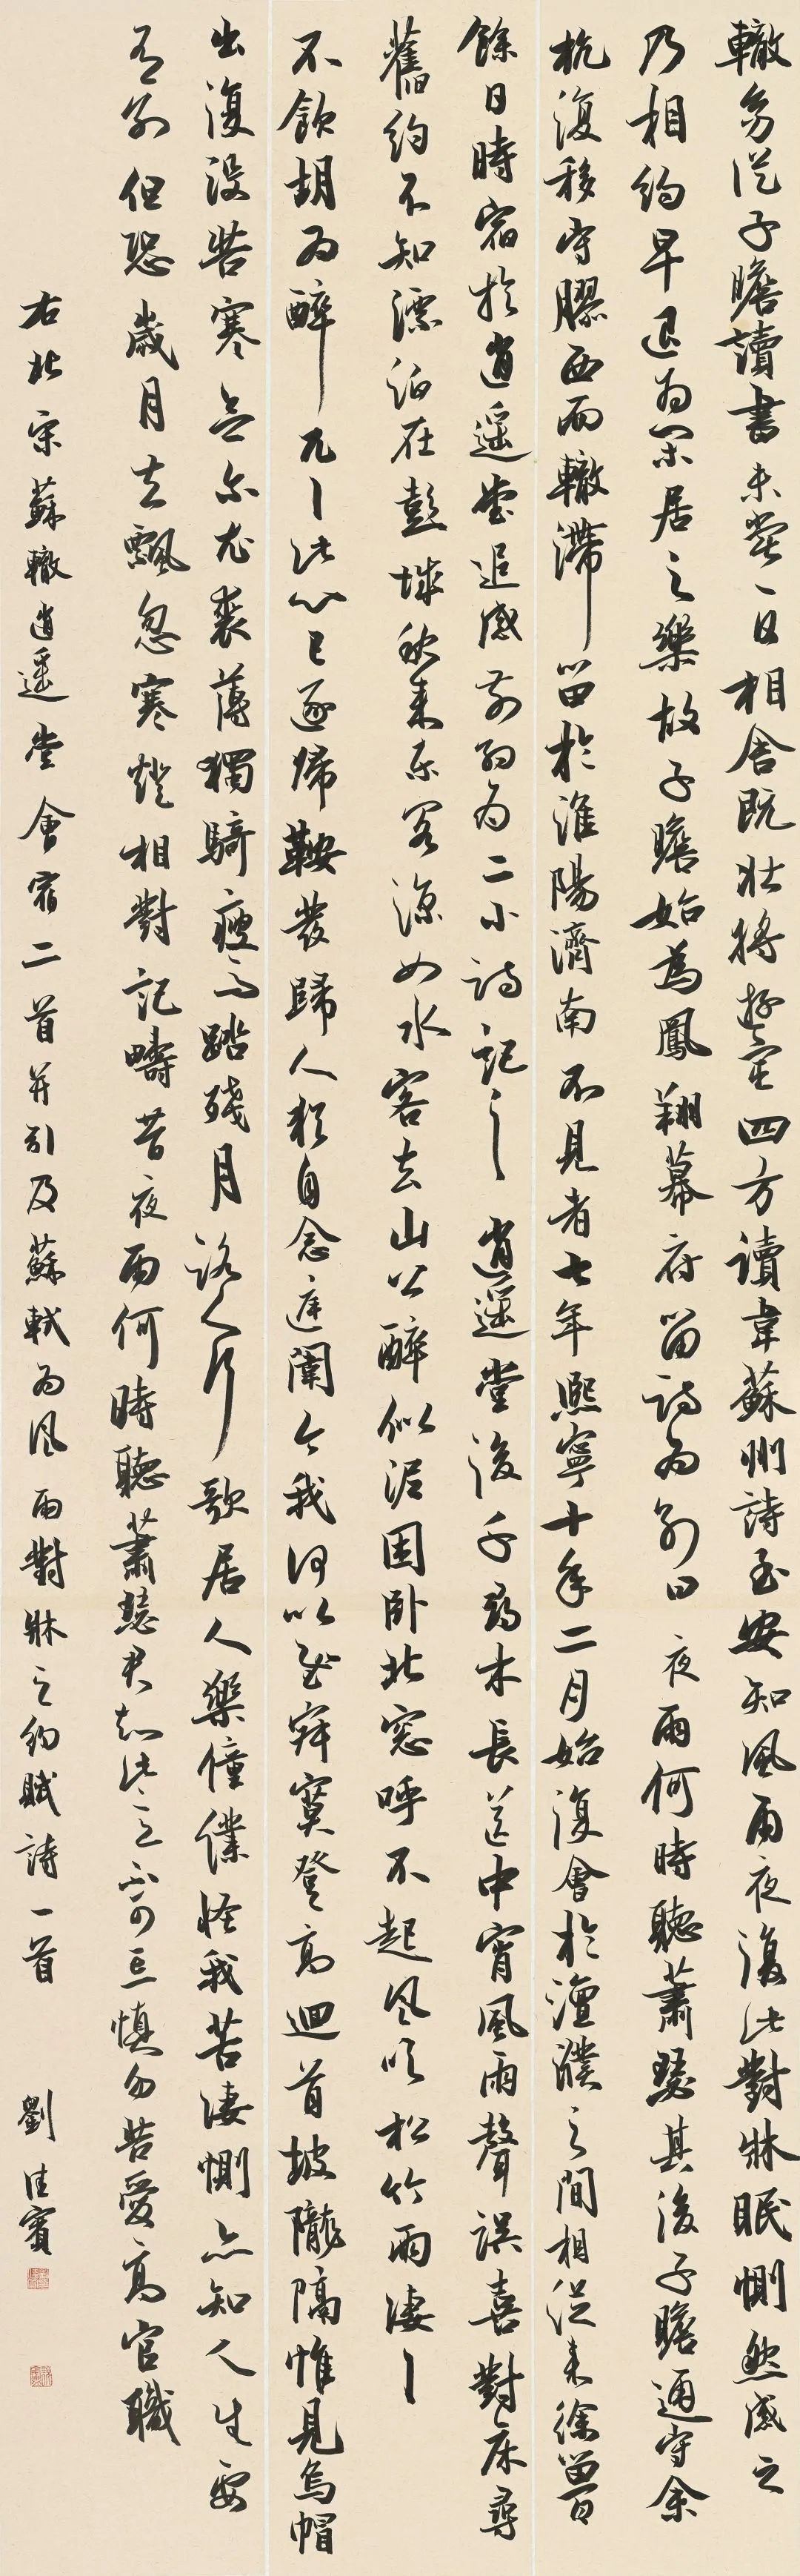 轍幼從子瞻讀書未嘗一日相舍既壯將遊宦四方讀韋蘇州詩至安知風雨夜復此對牀眠惻然感之
乃相約早退為閑居之樂故子瞻始為鳳翔幕府留詩為別曰夜雨何時聽蕭瑟其後子瞻通守余
杭復移守膠西而轍滯留於淮陽濟南不見者七年熙寧十年二月始復會於澶濮之間相從來徐留百
餘日時宿於逍遙堂追感前約為二小詩記之逍遙堂後千尋木長送中宵風雨聲誤喜對床尋
舊約不知漂泊在彭城秋來東閣涼如水客去山公醉似泥困臥北窗呼不起風吹松竹雨淒丶
不飲胡為醉兀丶此心已逐歸鞍發歸人猶自念庭闈今我何以慰寂寞登高迴首坡隴隔惟見烏帽
出復沒苦寒念爾衣裘薄獨騎瘦馬踏殘月路人行歌居人樂僮僕怪我苦淒惻亦知人生要
有別但恐歲月去飄忽寒燈相對記疇昔夜雨何時聽蕭瑟君知此意不可忘慎勿苦愛高官職
右北宋蘇轍逍遙堂會宿二首并引及蘇軾為風雨對牀之約賦詩一首 劉佳賓